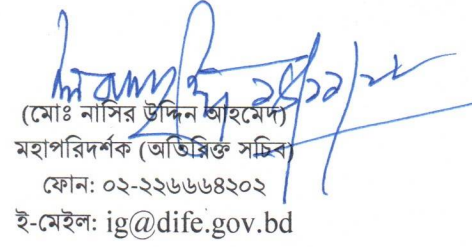 (মোঃ নাসির উদ্দিন আহমেদ)
মহাপরিদর্শক (অতিরিক্ত সচিব)
ফোন: ০২-২২৬৬৬৪২০২
ই-মেইল: ig@dife.gov.bd